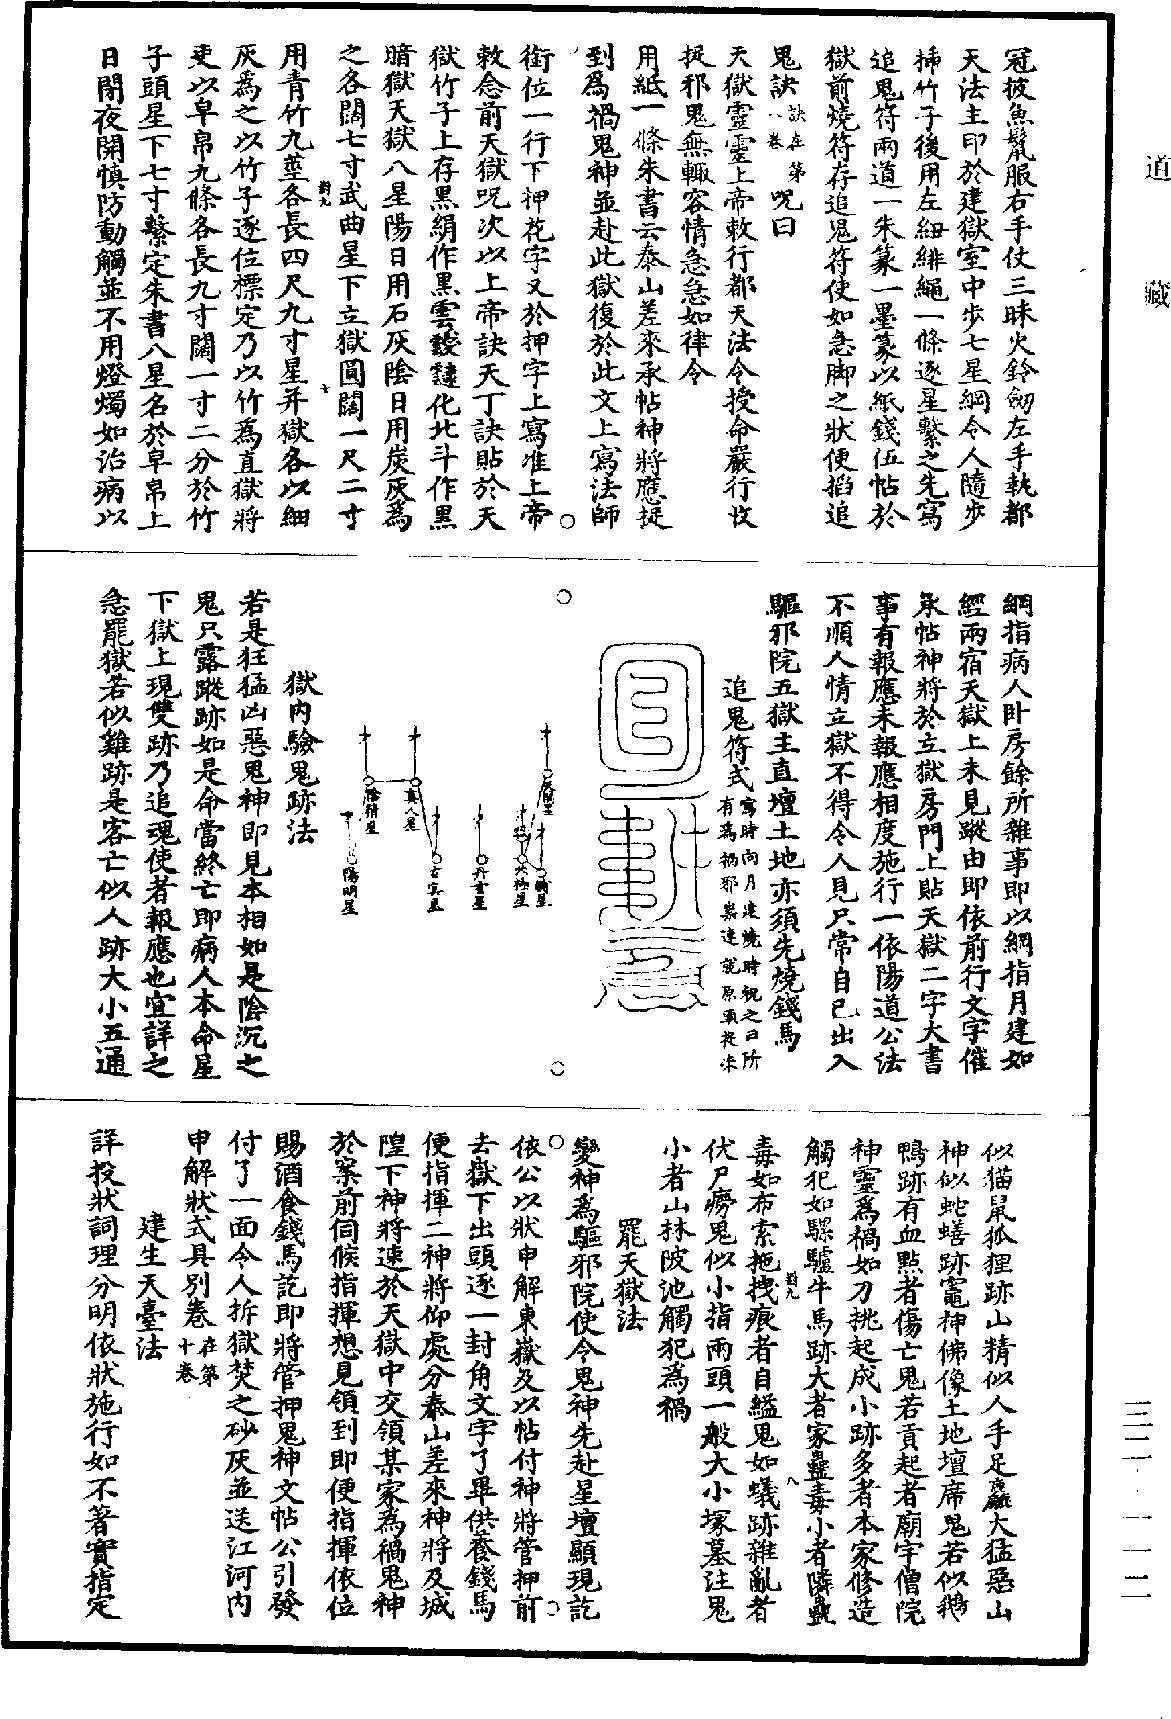 道藏
冠披魚鬣服右手仗三昧火鈴劒左手執都
天法主印於建獄室中步七星綱令人隨步
揷竹子後用左紐緋繩一條逐星繫之先寫
追鬼符兩道一朱篆一墨篆以紙錢伍帖於
獄前燒符存追鬼符使如急脚之狀便掐追
鬼訣訣在第八卷呪曰
天獄靈靈上帝敕行都天法令授命嚴行收
捉邪鬼無輙容情急急如律令
用紙一條朱書云泰山差來承帖神將應捉
到為禍鬼神並赴此獄復於此文上寫法師
銜位一行下押花字又於押字上寫准上帝
敕念前天獄呪次以上帝訣天丁訣貼於天
獄竹子上存黑絹作黑雲靉靆化北斗作黑
暗獄天獄八星陽日用石灰陰日用炭灰為
之各闊七寸武曲星下立獄圓闊一尺二寸
用青竹九莖各長四尺九寸星并獄各以細
灰為之以竹子逐位標定乃以竹為直獄將
吏以皁帛九條各長九寸闊一寸二分於竹
子頭星下七寸繫定朱書八星名於皁帛上
日閉夜開慎防動觸並不用燈燭如治病以
綱指病人卧房餘所雜事即以綱指月建如
經兩宿天獄上未見蹤由即依前行文字催
承帖神將於立獄房門上貼天獄二字大書
事有報應未報應相度施行一依陽道公法
不順人情立獄不得令人見只常自已出入
驅邪院五獄主直壇土地亦須先燒錢馬
追鬼符式寫時向月建燒時祝之曰所
有為禍邪祟速就原項捉來
文曲星
輔星
天極星
丹玄星
玄冥星
真人星
陰精星
陽明星
獄內驗鬼跡法
若是狂猛凶惡鬼神即見本相如是陰沉之
鬼只露蹤跡如是命當終亡即病人本命星
下獄上現雙跡乃追魂使者報應也宜詳之
急罷獄若似雞跡是客亡似人跡大小五通
似猫鼠狐狸跡山精似人手足麤大猛惡山
神似蛇蟮跡竈神佛像土地壇席鬼若似鵝
鴨跡有血點者傷亡鬼若貢起者廟宇僧院
神靈為禍如刀挑起成小跡多者本家修造
觸犯如騾驢牛馬跡大者家蠱毒小者隣蠱
毒如布索拖拽痕者自縊鬼如蟻跡雜亂者
伏尸癆鬼似小指兩頭一般大小塚墓注鬼
小者山林陂池觸犯為禍
罷天獄法
變神為驅邪院使令鬼神先赴星壇顯現訖
依公以狀申解東嶽及以帖付神將管押前
去獄下出頭逐一封角文字了畢供養錢馬
便指揮二神將仰處分泰山差來神將及城
隍下神將速於天獄中交領某家為禍鬼神
於案前伺候指揮想見領到即便指揮依位
賜酒食錢馬訖即將管押鬼神文帖公引發
付了一面令人拆獄焚之砂灰並送江河內
申解狀式具別卷在第十卷
建生天臺法
詳投狀詞理分明依狀施行如不著實指定
三二 一一二